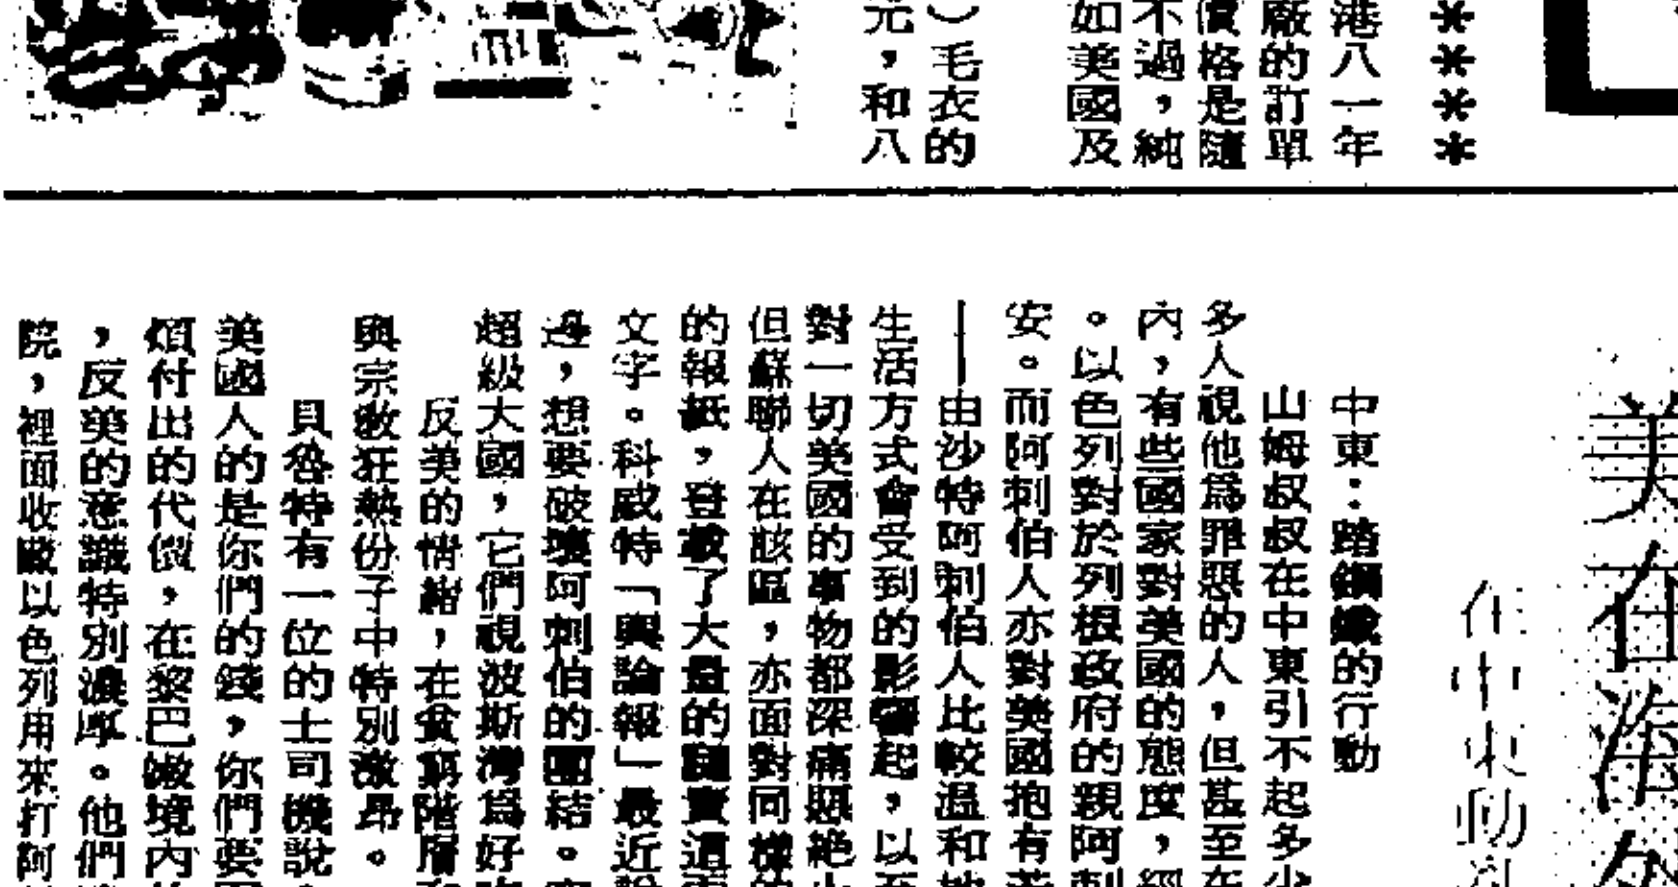 ＊＊＊＊
港八一年
廠的訂單
價格是隨
不過，純
如美國及
）毛衣的
元，和八
美在海
在中東動
中東：踏鋼纖的行動
山姆叔叔在中東引不起多少
多人視他爲罪惡的人，但甚至在
內，有些國家對美國的態度，經
。以色列對於列根政府的親阿刺
安。而阿刺伯人亦對美國抱有若
——由沙特阿刺伯人比較温和
生活方式會受到的影響起，以至
對一切美國的事物都深痛惡絶
但蘇聯人在該區，亦面對同樣的
的報紙，登載了大量的
文字。科威特「輿論報」最近說
，想要破壞阿刺伯的團結。
超級大國，它們視波斯灣爲好
反美的情緒，在貧窮階層和
與宗教狂熱份子中特別激昂。
貝魯特有一位的士司機說
美國人的是你們的錢，你們要
煩付出的代價，在黎巴嫩境內
，反美的意識特別濃厚。他們
院，裡面收藏以色列用來打阿